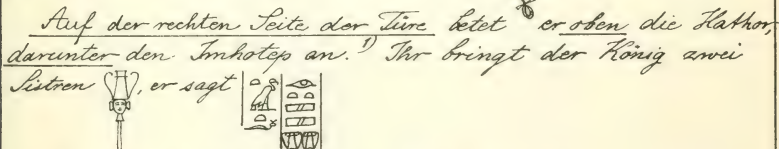 Auf der rechten Seite der Türe betet er oben die Hathor,
darunter den Imhotep an. 1) Ihr bringt der König zwei
Sistren, er sagt